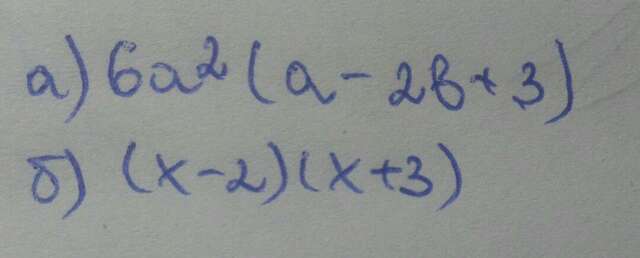 а) 6a²(a-2b+3)
б) (x-2)(x+3)